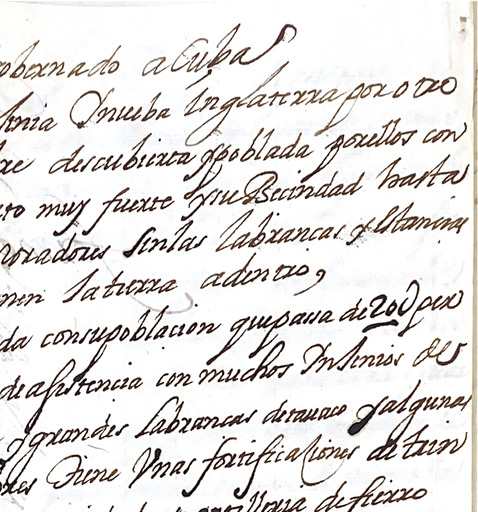 obernado a Cuba
inia Y nueba Inglaterra por otro
re descubierta y poblada por ellos con
to muy fuerte y su Becindad hasta
moradores sin las labrancas y estancias
nen la tierra adentro,
da con su poblacion que passa de 20U per
de asistencia con muchos Insenios de
y grandes labrancas de tauaco y algunas
ores Tiene Unas fortificaciones de trin
artilleria de fierro